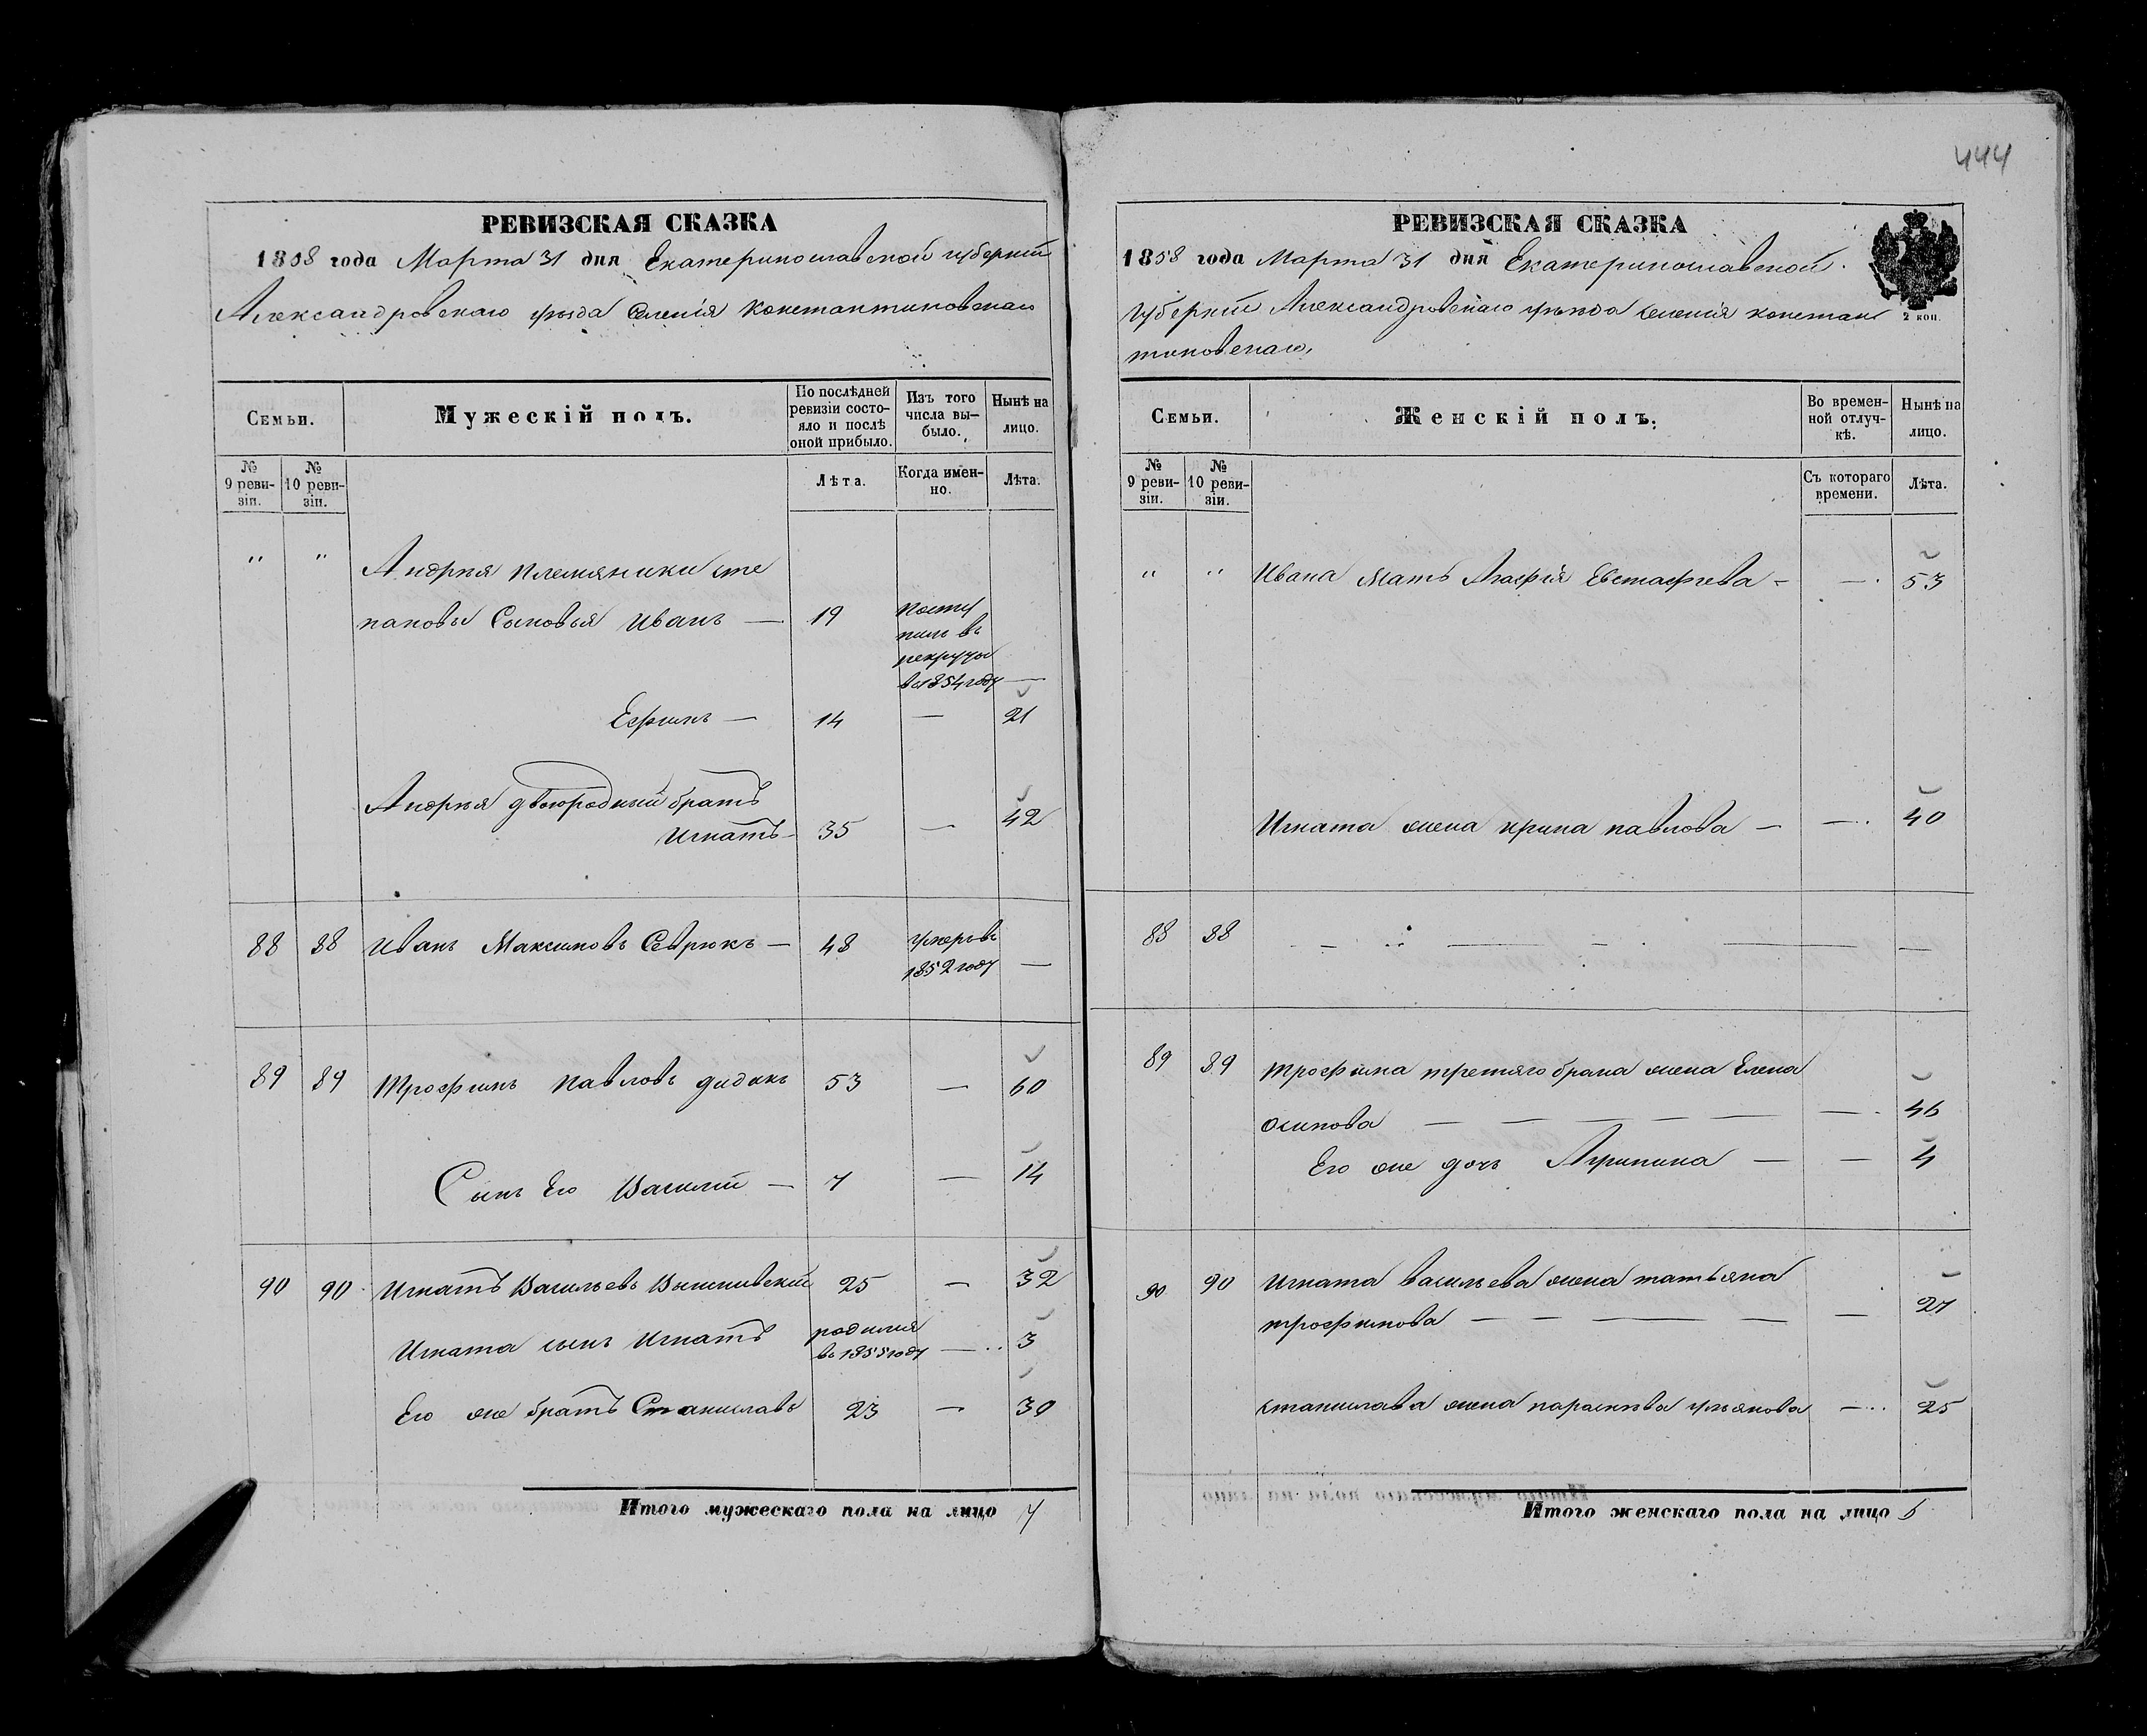 444
РЕВИЗСКАЯ СКАЗКА
1858 года Марта 31 дня Екатеринославской губерніи
Александровскаго уѣзда Селенія Константиновскаго
Семьи.
Мужескій полъ.
По послѣдней ревизіи состояло и послѣ оной прибыло.
Изъ того числа выбыло.
Нынѣ на лицо.
№ 9 ревизіи.
№ 10 ревизіи.
Лѣта.
Когда именно.
Лѣта.
" " Андрѣя племяники сте
пановы Сыновья Иванъ — 19 посту
пилъ въ
рекруты
въ 1854 году —
Ефимъ — 14 — 21
Андрѣя двоюродный братъ
Игнатъ — 35 — 42
88 88 Иванъ Максимовъ Севрюкъ — 48 умеръ въ
1852 году —
89 89 Трофимъ Павловъ дидикъ 53 — 60
Сынъ Его Василій — 7 — 14
90 90 Игнатъ Васильевъ Вишнивскій 25 — 32
Игната сынъ Игнатъ родился
въ 1855 году — 3
Его же братъ Станиславъ 23 — 30
Итого мужескаго пола на лицо 7
РЕВИЗСКАЯ СКАЗКА
1858 года Марта 31 дня Екатеринославской
губерніи Александровскаго уѣзда селенія констан
тиновскаго,
2 коп.
Семьи.
Женскій полъ.
Во временной отлучкѣ.
Нынѣ на лицо.
№ 9 ревизіи.
№ 10 ревизіи.
Съ котораго времени.
Лѣта.
" " Ивана Мать Агафія Евстафіева — — 53
Игната жена ирина павлова — — 40
88 88 — — — — —
89 89 трофима третяго брака жена Елена
осипова — — — — — — 46
Его же дочь Агрипина — — 4
90 90 Игната васильева жена татьяна
трофимова — — — — — 27
станислава жена параскѣва ульянова — 25
Итого женскаго пола на лицо 6